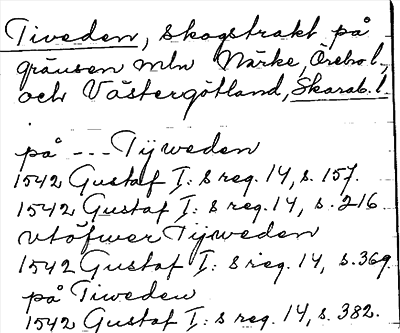 Tiveden, skogstrakt på
gränsen mln Närke, Örebo l.,
och Västergötland, Skarab. l.
på --- Tijweden
1542 Gustaf I:s reg. 14, s. 157.
1542 Gustaf I:s reg. 14, s. 216
vtöfwer Tijweden
1542 Gustaf I:s reg. 14, s. 369.
på Tiweden
1542 Gustaf I:s reg. 14, s. 382.